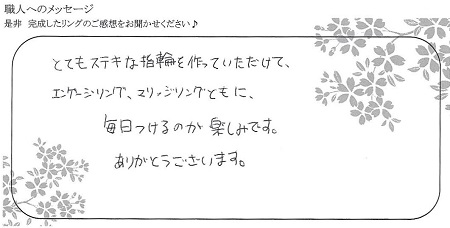 職人へのメッセージ
是非 完成したリングのご感想をお聞かせください♪
とてもステキな指輪を作っていただけて、
エンゲージリング、マリッジリングともに、
毎日つけるのが楽しみです。
ありがとうございます。